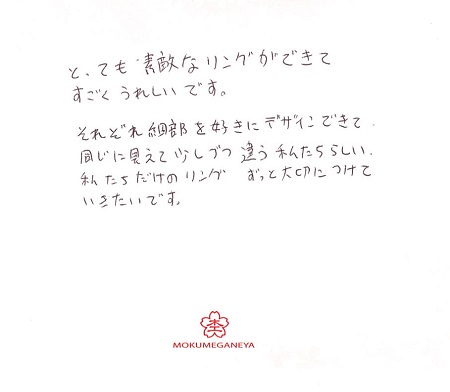 とっても素敵なリングができて
すごくうれしいです。
それぞれ細部を好きにデザインできて、
同じに見えて少しづつ違う私たちらしい、
私たちだけのリング ずっと大切につけて
いきたいです。
杢
MOKUMEGANEYA